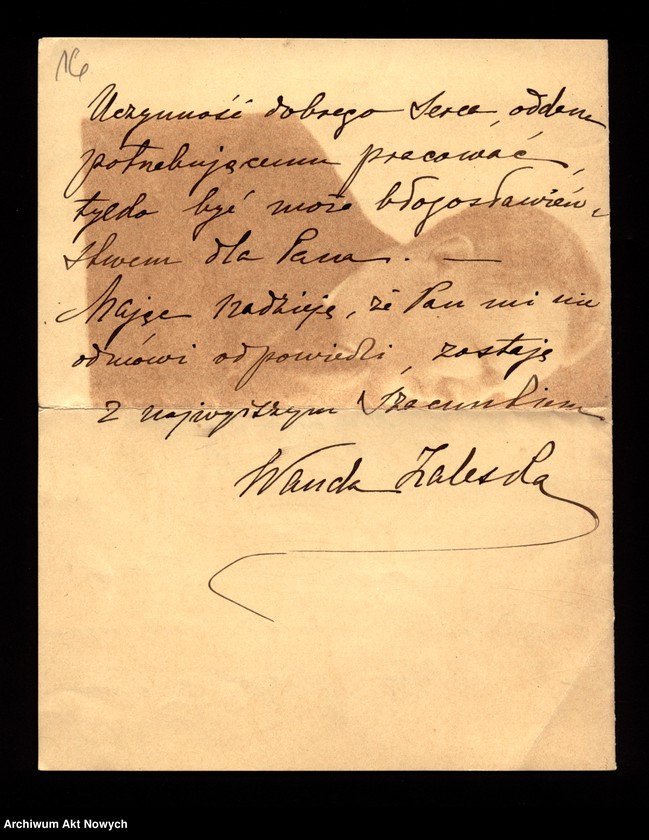 16
Uczynność dobrego Serca, oddana
potrzebującemu pracować,
tylko być może błogosławień-
stwem dla Pana. —
Mając nadzieję, że Pan mi nie
odmówi odpowiedzi, zostaję
z najwyższym Szacunkiem
Wanda Zaleska
Archiwum Akt Nowych